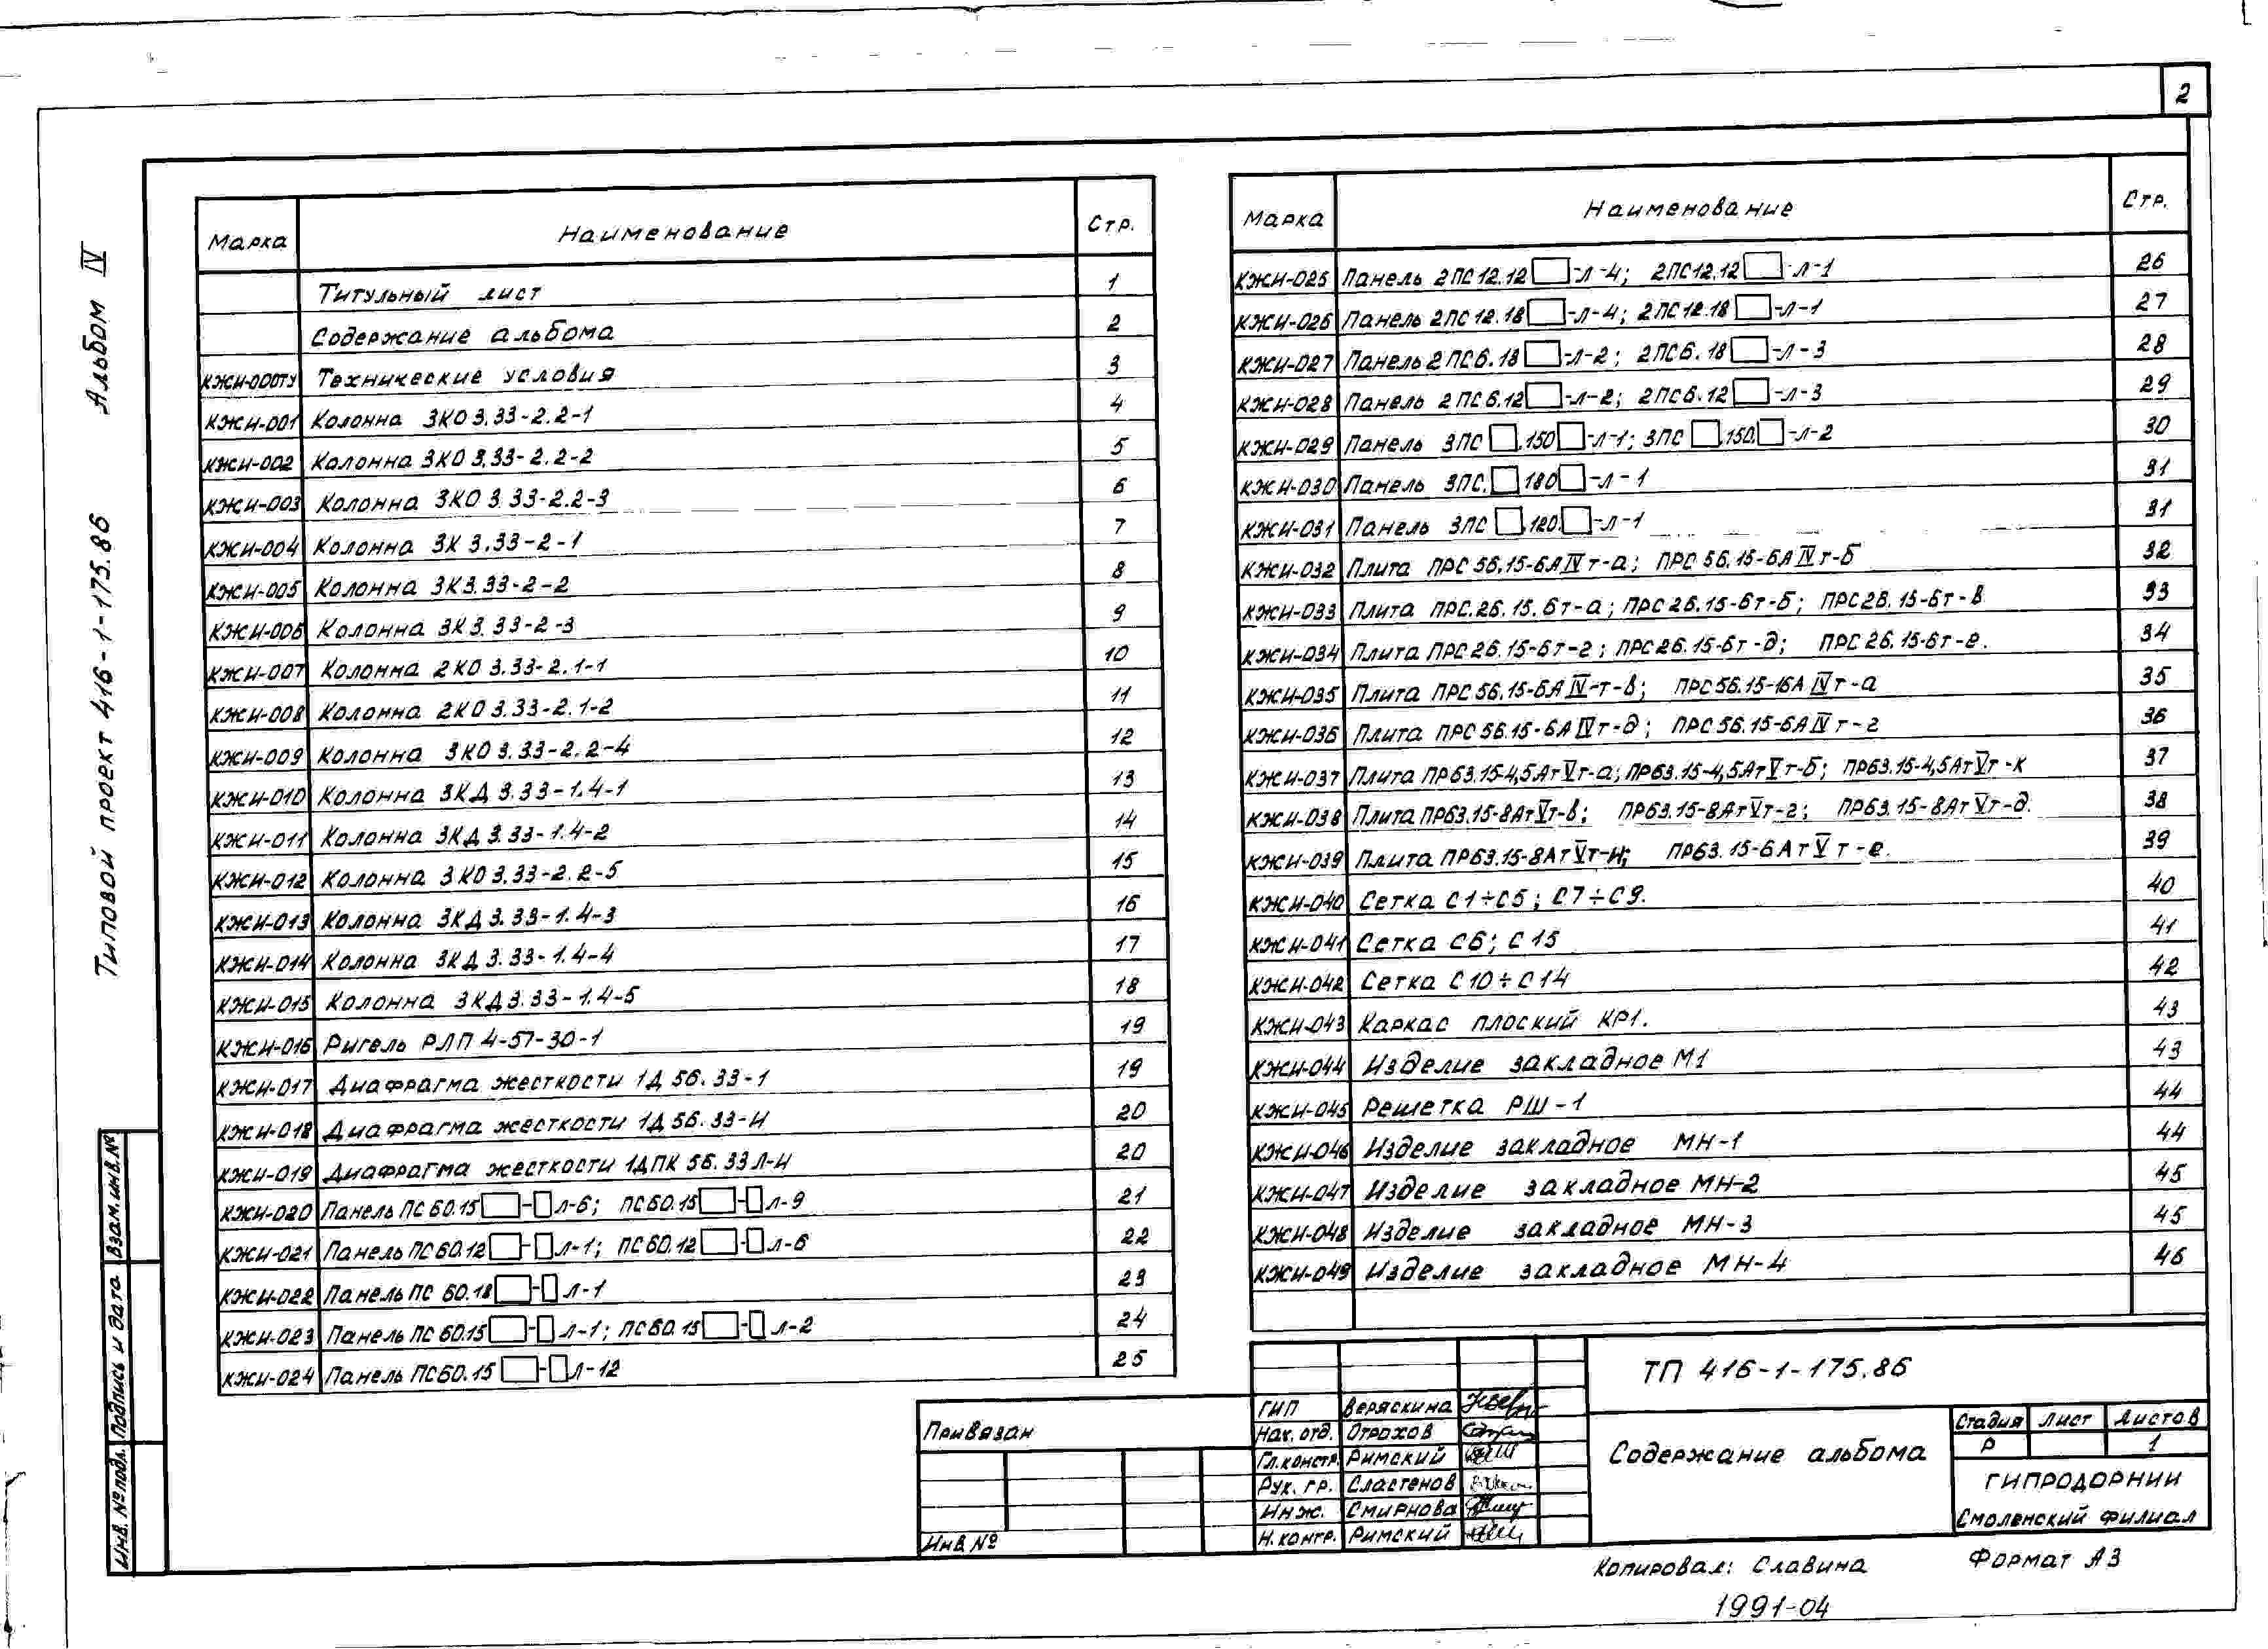 2
Альбом IV
Типовой проект 416-1-175.86
Взам. инв. №
Подпись и дата
Инв. № подл.
Марка Наименование Стр.
Титульный лист 1
Содержание альбома 2
КЖИ-000ТУ Технические условия 3
КЖИ-001 Колонна 3КО 3.33-2.2-1 4
КЖИ-002 Колонна 3КО 3.33-2.2-2 5
КЖИ-003 Колонна 3КО 3.33-2.2-3 6
КЖИ-004 Колонна 3К 3.33-2-1 7
КЖИ-005 Колонна 3К3.33-2-2 8
КЖИ-006 Колонна 3К3.33-2-3 9
КЖИ-007 Колонна 2КО 3.33-2.1-1 10
КЖИ-008 Колонна 2КО 3.33-2.1-2 11
КЖИ-009 Колонна 3КО 3.33-2.2-4 12
КЖИ-010 Колонна 3КД 3.33-1.4-1 13
КЖИ-011 Колонна 3КД 3.33-1.4-2 14
КЖИ-012 Колонна 3КО 3.33-2.2-5 15
КЖИ-013 Колонна 3КД 3.33-1.4-3 16
КЖИ-014 Колонна 3КД 3.33-1.4-4 17
КЖИ-015 Колонна 3КД 3.33-1.4-5 18
КЖИ-016 Ригель РЛП 4-57-30-1 19
КЖИ-017 Диафрагма жесткости 1Д 56.33-1 19
КЖИ-018 Диафрагма жесткости 1Д 56.33-И 20
КЖИ-019 Диафрагма жесткости 1ДПК 56.33Л-И 20
КЖИ-020 Панель ПС 60.15□-□л-6; ПС60.15□-□л-9 21
КЖИ-021 Панель ПС60.12□-□л-1; ПС60.12□-□л-6 22
КЖИ-022 Панель ПС 60.18□-□л-1 23
КЖИ-023 Панель ПС 60.15□-□л-1; ПС60.15□-□л-2 24
КЖИ-024 Панель ПС60.15□-□л-12 25
Марка Наименование Стр.
КЖИ-025 Панель 2ПС12.12□-л-4; 2ПС12.12□-л-1 26
КЖИ-026 Панель 2ПС12.18□-л-4; 2ПС12.18□-л-1 27
КЖИ-027 Панель 2ПС6.18□-л-2; 2ПС6.18□-л-3 28
КЖИ-028 Панель 2ПС6.12□-л-2; 2ПС6.12□-л-3 29
КЖИ-029 Панель 3ПС□.150□-л-1; 3ПС□.150.□-л-2 30
КЖИ-030 Панель 3ПС.□180□-л-1 31
КЖИ-031 Панель 3ПС□.120.□-л-1 31
КЖИ-032 Плита ПРС 56.15-6АIVт-а; ПРС 56.15-6АIVт-б 32
КЖИ-033 Плита ПРС.26.15.6т-а; ПРС26.15-6т-б; ПРС26.15-6т-в 33
КЖИ-034 Плита ПРС26.15-6т-г; ПРС26.15-6т-д; ПРС26.15-6т-е. 34
КЖИ-035 Плита ПРС56.15-6АIV-т-в; ПРС56.15-16АIVт-а 35
КЖИ-036 Плита ПРС56.15-6АIVт-д; ПРС56.15-6АIVт-г 36
КЖИ-037 Плита ПР63.15-4,5АтVт-а; ПР63.15-4,5АтVт-б; ПР63.15-4,5АтVт-к 37
КЖИ-038 Плита ПР63.15-8АтVт-в; ПР63.15-8АтVт-г; ПР63.15-8АтVт-д. 38
КЖИ-039 Плита ПР63.15-8АтVт-и; ПР63.15-6АтVт-е. 39
КЖИ-040 Сетка С1÷С5; С7÷С9. 40
КЖИ-041 Сетка С6; С15 41
КЖИ-042 Сетка С10÷С14 42
КЖИ-043 Каркас плоский КР1. 43
КЖИ-044 Изделие закладное М1 43
КЖИ-045 Решетка РШ-1 44
КЖИ-046 Изделие закладное МН-1 44
КЖИ-047 Изделие закладное МН-2 45
КЖИ-048 Изделие закладное МН-3 45
КЖИ-049 Изделие закладное МН-4 46
Привязан
Инв.№
ГИП Веряскина
Нач. отд. Отрохов
Гл.констр. Римский
Рук. гр. Сластенов
Инж. Смирнова
Н.контр. Римский
ТП 416-1-175.86
Содержание альбома
Стадия Лист Листов
Р 1
ГИПРОДОРНИИ
Смоленский филиал
Копировал: Славина Формат А3
1991-04